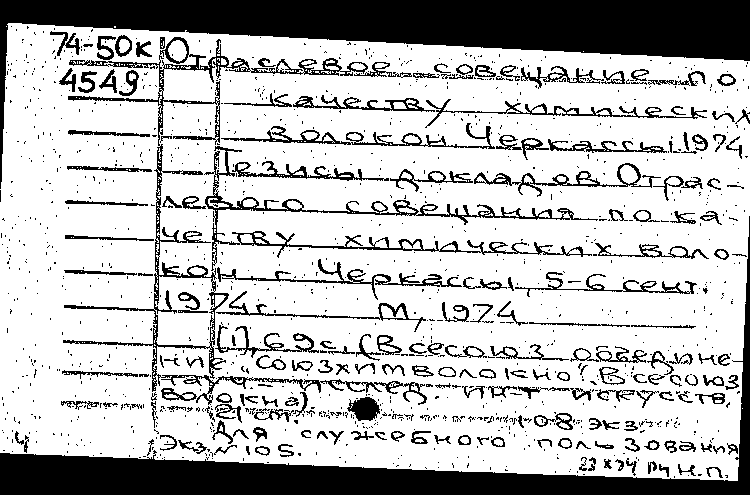 74-50к Отраслевое совещание по
4549
качеству химических
волокон. Черкассы. 1974.
Тезисы докладов Отрас-
левого совещания по ка-
честву химических воло-
кон г. Черкассы, 5-6 сент.
1974г. М., 1974
[1], 69с. (Всесоюз объедине-
ние "союзхимволокно". Всесоюз
науч-исслед. ин-т искусств.
волокна)
21 cm. 108 экз
Для служебного пользования
Экз. № 105.
23 X 74 Н.П.